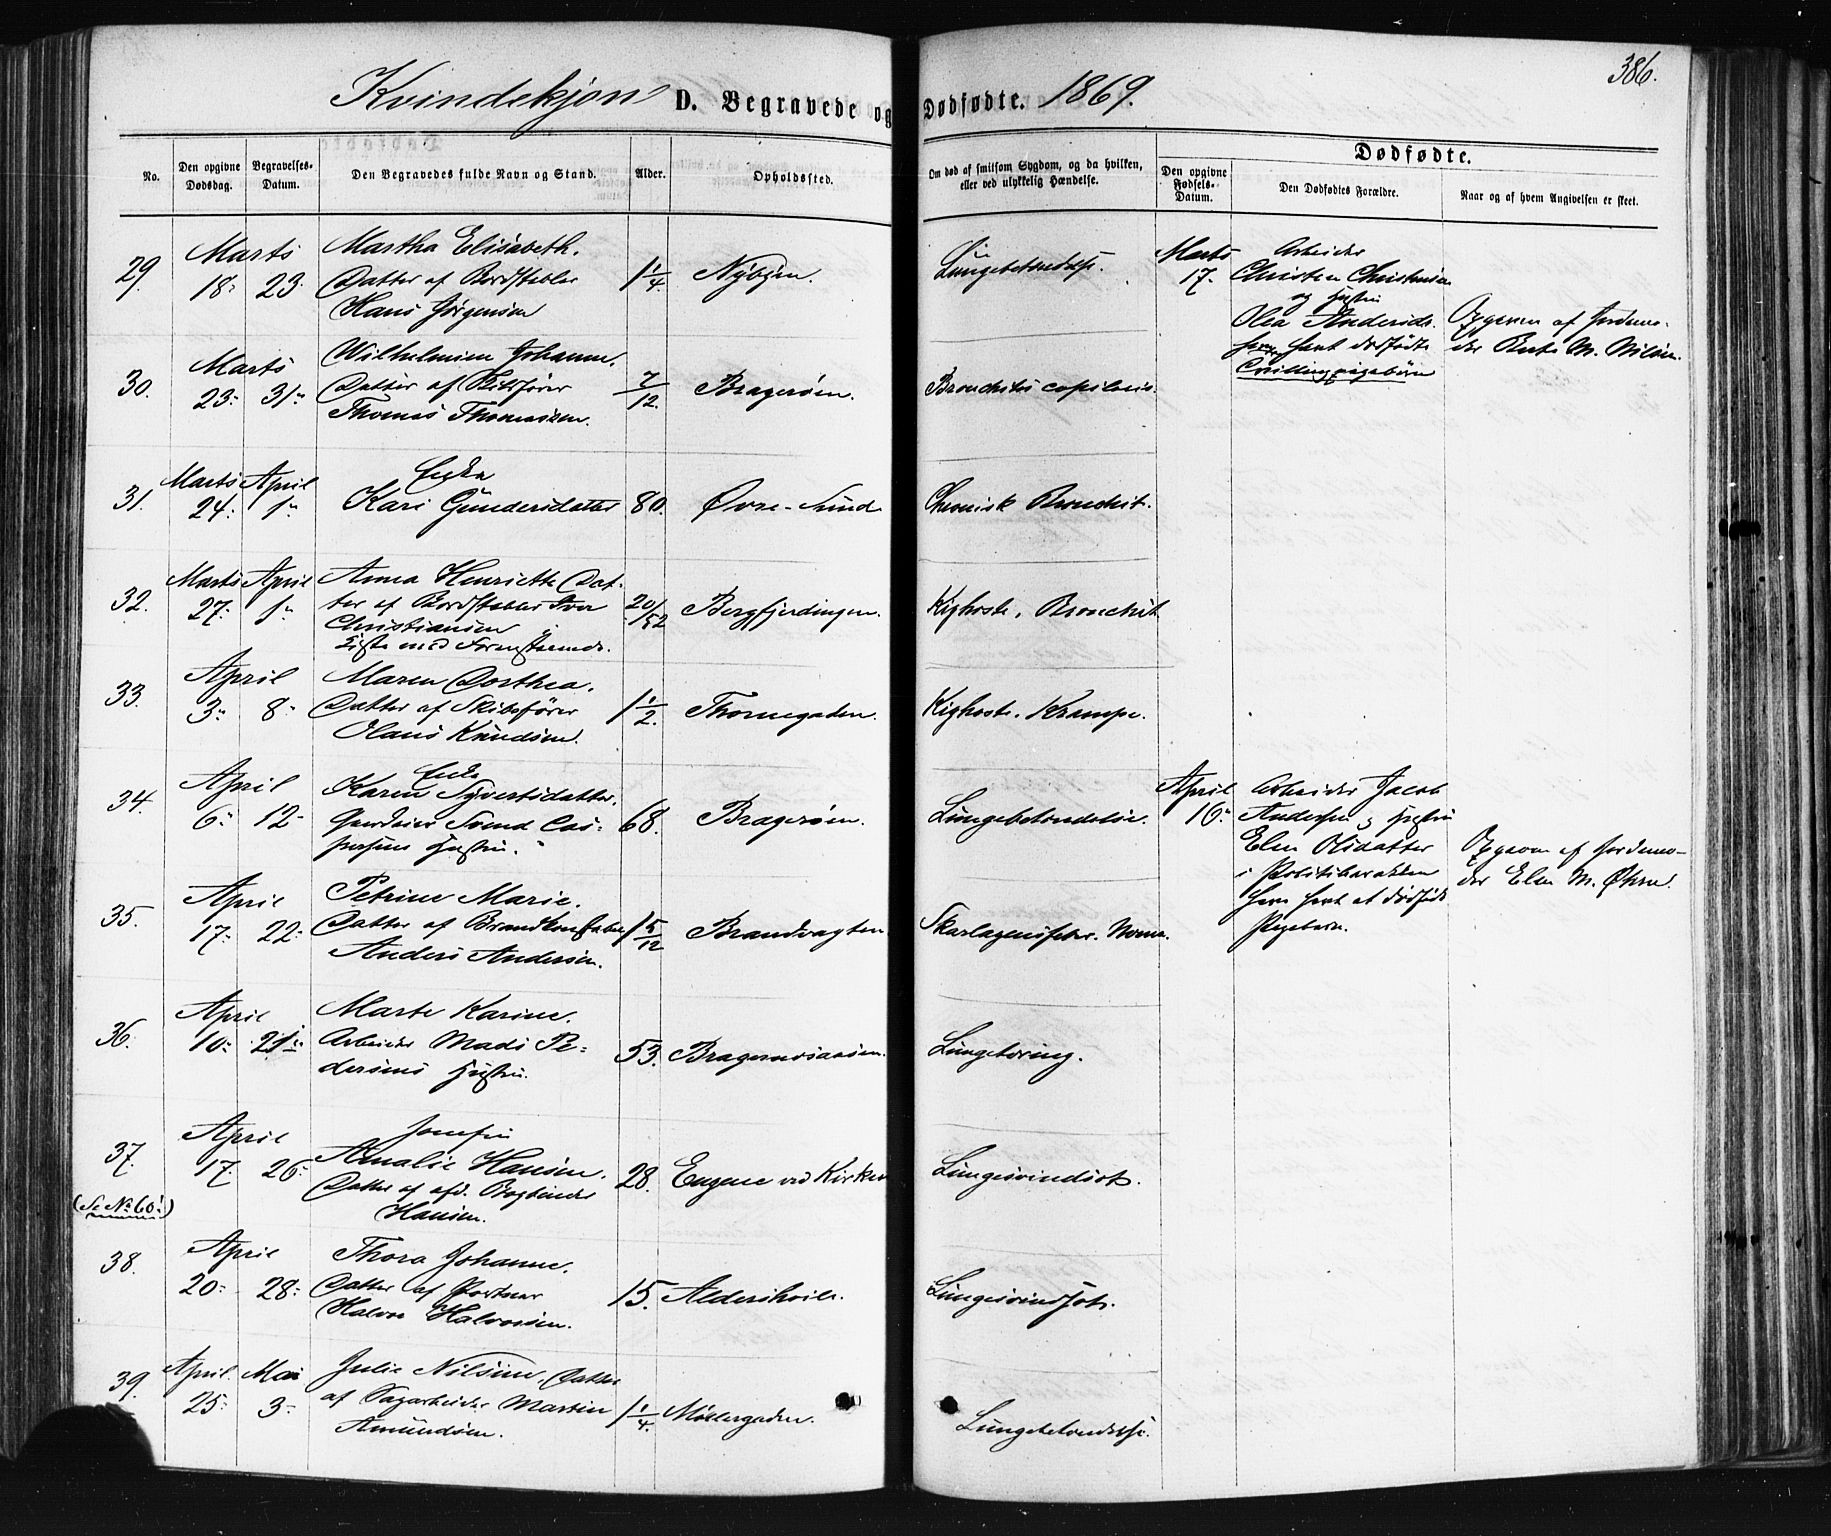 386.
Kvindekjøn D. Begravede og Dødfødte. 1869.
No.
Den opgivne Dødsdag.
Begravelses-Datum.
Den Begravedes fulde Navn og Stand.
Alder.
Opholdssted.
Om død af smitsom Sygdom, og da hvilken,
eller ved ulykkelig Hændelse.
Dødfødte.
Den opgivne Fødsels-Datum.
Den Dødfødtes Forældre.
Naar og af hvem Angivelsen er skeet.
29. Marts 18. 23. Martha Elisabeth.
Datter af Bordstabler
Hans Jörgensen
1 1/4. Nybyen. Lungebetændelse.
Marts 17. Arbeider
Christen Christensen
og Hustru
Olea Andersdr.
havt dødfødte
Tvillingpigebörn
Opgiven af Jordemo-
der Berte M. Nilsen.
30. Marts 23. 31. Wilhelmine Johanne.
Datter af Skibsfører
Thomas Thomassen.
7/12. Bragerøen. Bronchitis capilaris.
31. Marts 24. April 1. Enke
Kari Gundersdatter
80. Øvre-Sund Chronisk Bronchit.
32. Marts 27. April 1. Anna Henriette Dat-
ter af Bordstabler Iver
Christiansen
20/52 Bergfjerdingen. Kighoste. Bronchit.
33. April 3. 8. Maren Dorthea.
Datter af Skibsfører
Olaus Knudsen.
1 1/2. Thornegaden. Kighoste. Krampe.
34. April 6. 12. Enke
Karen Syvertsdatter.
Svend Cas-
persens Hustru.
68. Bragerøen. Lungebetændelse.
April 16. Arbeider Jacob
Andersen og Hustru
Elen Olsdatter
i Politibarakken
havt et dødfødt
Pigebarn.
Opgiven af Jordemo-
der Elen M. Øhrn.
35. April 17. 22. Petrine Marie.
Datter af Brandkonstabel
Anders Andersen.
1 5/12 Brandvagten Skarlagensfeber. Noma.
36. April 10. 21. Marte Karine.
Arbeider Mads Pe-
dersens Hustru.
53. Bragernesaasen. Lungetæring.
37. (Se No 60!) April 17. 26. Jomfru
Amalie Hansen.
Datter af afd. Bogbinder
Hansen.
28. Engene ved Kirken Lungesvindsot.
38. April 20. 28. Thora Johanne.
Datter af Portner
Halvor Halvorsen.
15. Aldershvile. Lungesvindsot.
39. April 25. Mai 3. Julie Nilsine. Datter
af Sagarbeider Martin
Amundsen.
1 1/4. Møllergaden. Lungebetændelse.